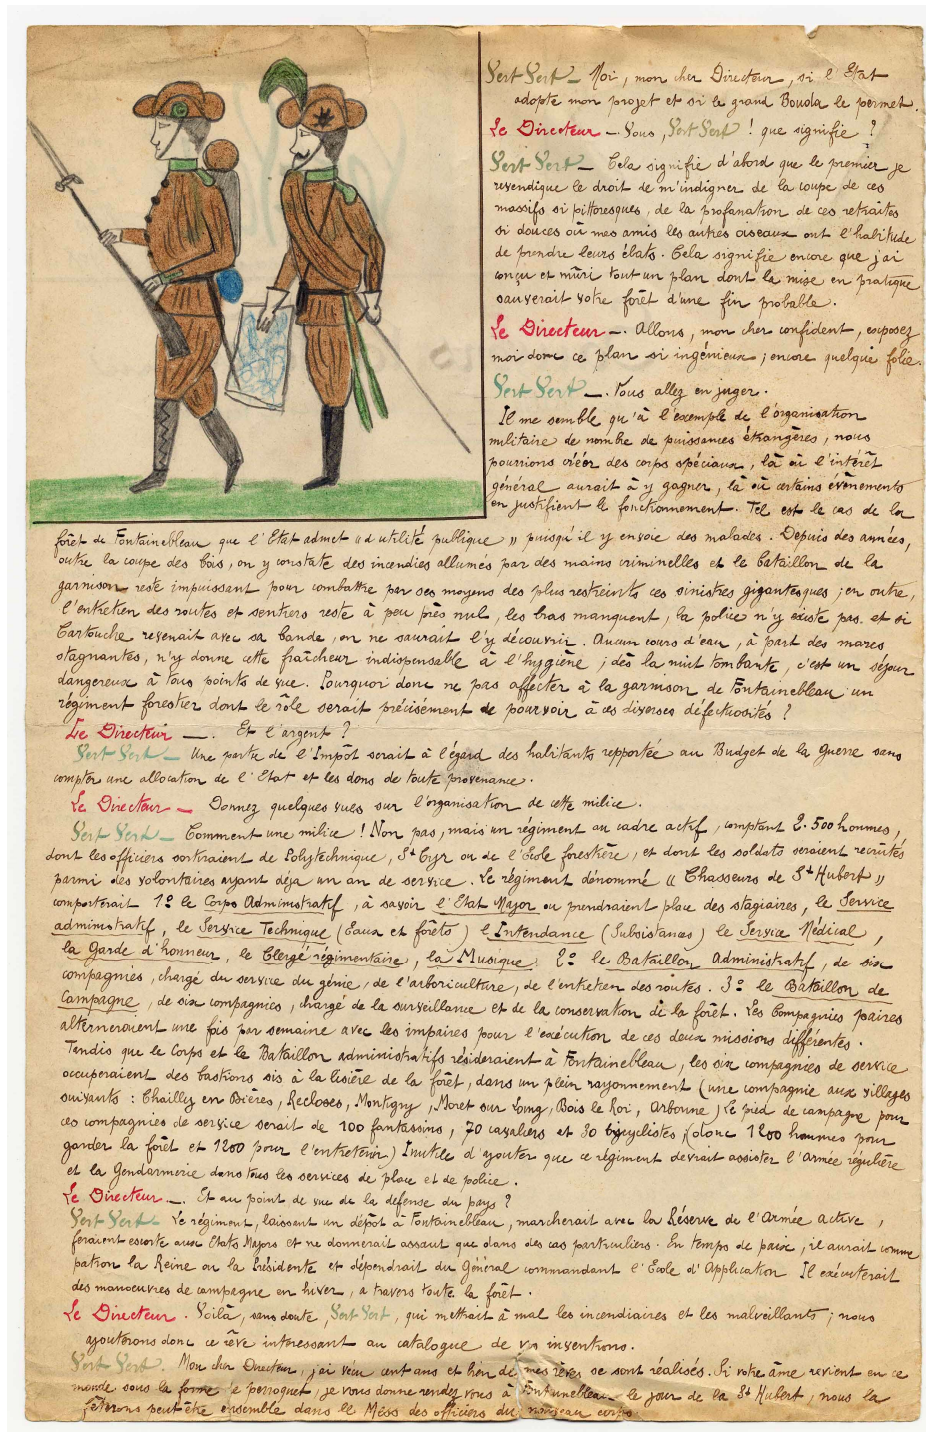 Vert Vert — Moi, mon cher Directeur, si l'Etat
adopte mon projet et si le grand Bouda le permet.
Le Directeur —. Vous, Vert Vert ! que signifie ?
Vert Vert — Cela signifie d'abord que le premier je
revendique le droit de m'indigner de la coupe de ces
massifs si pittoresques, de la profanation de ces retraites
si douces où mes amis les autres oiseaux ont l'habitude
de prendre leurs ébats. Cela signifie encore que j'ai
conçu et mûri tout un plan dont la mise en pratique
sauverait votre forêt d'une fin probable.
Le Directeur —. Allons, mon cher confident, exposez
moi donc ce plan si ingénieux ; encore quelque folie.
Vert Vert —. Vous allez en juger.
Il me semble qu'à l'exemple de l'organisation
militaire de nombre de puissances étrangères, nous
pourrions créer des corps spéciaux, là où l'intérêt
général aurait à y gagner, là où certains évènements
en justifient le fonctionnement. Tel est le cas de la
forêt de Fontainebleau que l'Etat admet "d'utilité publique" puisqu'il y envoie des malades. Depuis des années,
outre la coupe des bois, on y constate des incendies allumés par des mains criminelles et le bataillon de la
garnison reste impuissant pour combattre par ses moyens des plus restreints ces sinistres gigantesques ; en outre,
l'entretien des routes et sentiers reste à peu près nul, les bras manquent, la police n'y existe pas et si
Cartouche revenait avec sa bande, on ne saurait l'y découvrir. Aucun cours d'eau, à part des mares
stagnantes, n'y donne cette fraîcheur indispensable à l'hygiène ; dès la nuit tombante, c'est un séjour
dangereux à tous points de vue. Pourquoi donc ne pas affecter à la garnison de Fontainebleau un
régiment forestier dont le rôle serait précisement de pourvoir à ces diverses défectuosités ?
Le Directeur —. Et l'argent ?
Vert Vert — Une partie de l'Impôt serait à l'égard des habitants reportée au Budget de la Guerre sans
compter une allocation de l'Etat et les dons de toute provenance.
Le Directeur — Donnez quelques vues sur l'organisation de cette milice.
Vert Vert — Comment une milice ! Non pas, mais un régiment au cadre actif, comptant 2.500 hommes,
dont les officiers sortiraient de Polytechnique, St Cyr ou de l'Ecole forestière, et dont les soldats seraient recrutés
parmi des volontaires ayant déja un an de service. Le régiment dénommé "Chasseurs de St Hubert"
comporterait 1º le Corps Administratif, à savoir l'Etat Major ou prendraient place des stagiaires, le Service
administratif, le Service Technique (Eaux et forêts) l'Intendance (Subsistances) le Service Médical,
la Garde d'honneur, le Clergé régimentaire, la Musique. 2º le Bataillon Administratif, de six
compagnies, chargé du service du génie, de l'arboriculture, de l'entretien des routes. 3º le Bataillon de
Campagne, de six compagnies, chargé de la surveillance et de la conservation de la forêt. Les Compagnies paires
alterneraient une fois par semaine avec les impaires pour l'exécution de ces deux missions différentes.
Tandis que le Corps et le Bataillon administratifs résideraient à Fontainebleau, les six compagnies de service
occuperaient des bastions sis à la lisière de la forêt, dans un plein rayonnement (une compagnie aux villages
suivants : Chailly en Bières, Recloses, Montigny, Moret sur Loing, Bois le Roi, Arbonne) Le pied de campagne pour
ces compagnies de service serait de 100 fantassins, 70 cavaliers et 30 bicyclistes, (donc 1200 hommes pour
garder la forêt et 1200 pour l'entretenir) Inutile d'ajouter que ce régiment devrait assister l'Armée régulière
et la Gendarmerie dans tous les services de place et de police.
Le Directeur —. Et au point de vue de la défense du pays ?
Vert Vert — Le régiment, laissant un dépôt à Fontainebleau, marcherait avec la Réserve de l'Armée active,
feraient escorte aux Etats Majors et ne donnerait assaut que dans des cas particuliers. En temps de paix, il aurait comme
patron la Reine ou la Présidente et dépendrait du Général commandant l'Ecole d'Application Il exécuterait
des manoeuvres de campagne en hiver, a travers toute la forêt.
Le Directeur. Voilà, sans doute, Vert Vert, qui mettrait à mal les incendiaires et les malveillants ; nous
ajouterons donc ce rêve intéressant au catalogue de vos inventions.
Vert Vert. Mon cher Directeur, j'ai vécu cent ans et bien de mes rêves se sont réalisés. Si votre âme revient en ce
monde sous la forme de perroquet, je vous donne rendez vous à Fontainebleau le jour de la St Hubert, nous la
fêterons peut être ensemble dans le Mess des officiers du nouveau corps